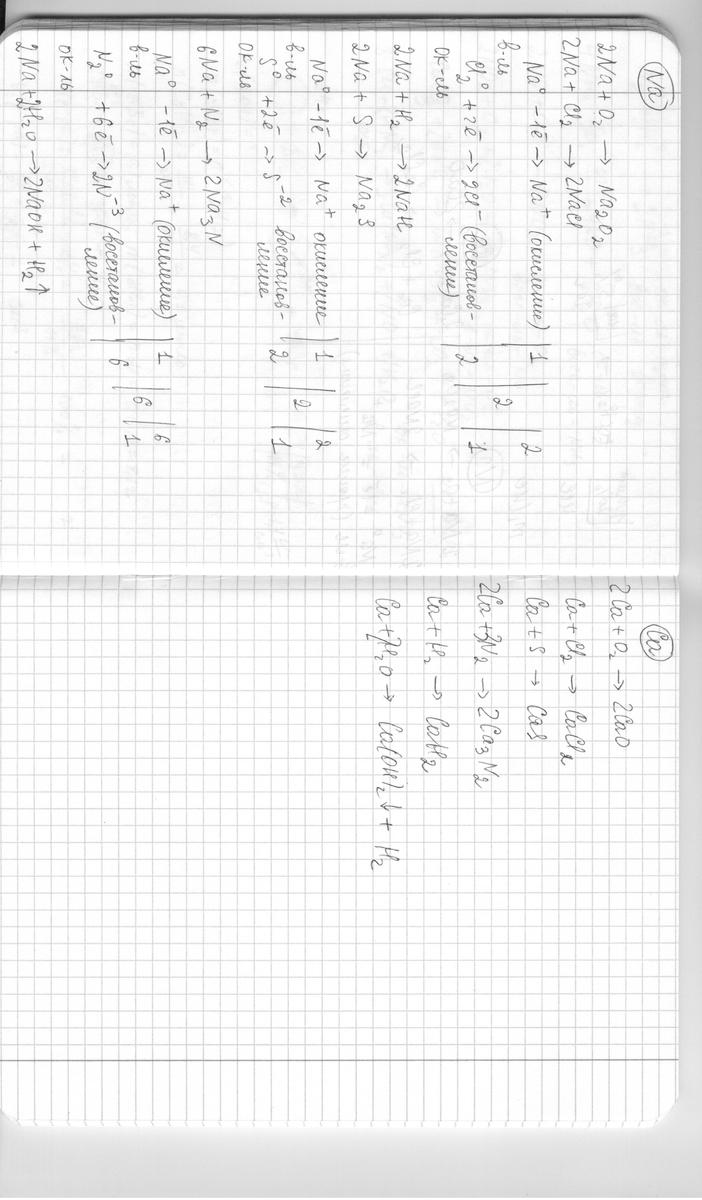 Na
2Na + O₂ → Na₂O₂
2Na + Cl₂ → 2NaCl
Na⁰ - 1ē → Na⁺ (окисление) | 1 | | 2
в-ль | 2 |
Cl₂⁰ + 2ē → 2Cl⁻ (восстанов- | 2 | | 1
ок-ль ление)
2Na + H₂ → 2NaH
2Na + S → Na₂S
Na⁰ - 1ē → Na⁺ окисление | 1 | | 2
в-ль | 2 |
S⁰ + 2ē → S⁻² восстанов- | 2 | | 1
ок-ль ление
6Na + N₂ → 2Na₃N
Na⁰ - 1ē → Na⁺ (окисление) | 1 | | 6
в-ль | 6 |
N₂⁰ + 6ē → 2N⁻³ (восстанов- | 6 | | 1
ок-ль ление)
2Na + 2H₂O → 2NaOH + H₂↑
Ca
2Ca + O₂ → 2CaO
Ca + Cl₂ → CaCl₂
Ca + S → CaS
2Ca + 3N₂ → 2Ca₃N₂
Ca + H₂ → CaH₂
Ca + 2H₂O → Ca(OH)₂↓ + H₂